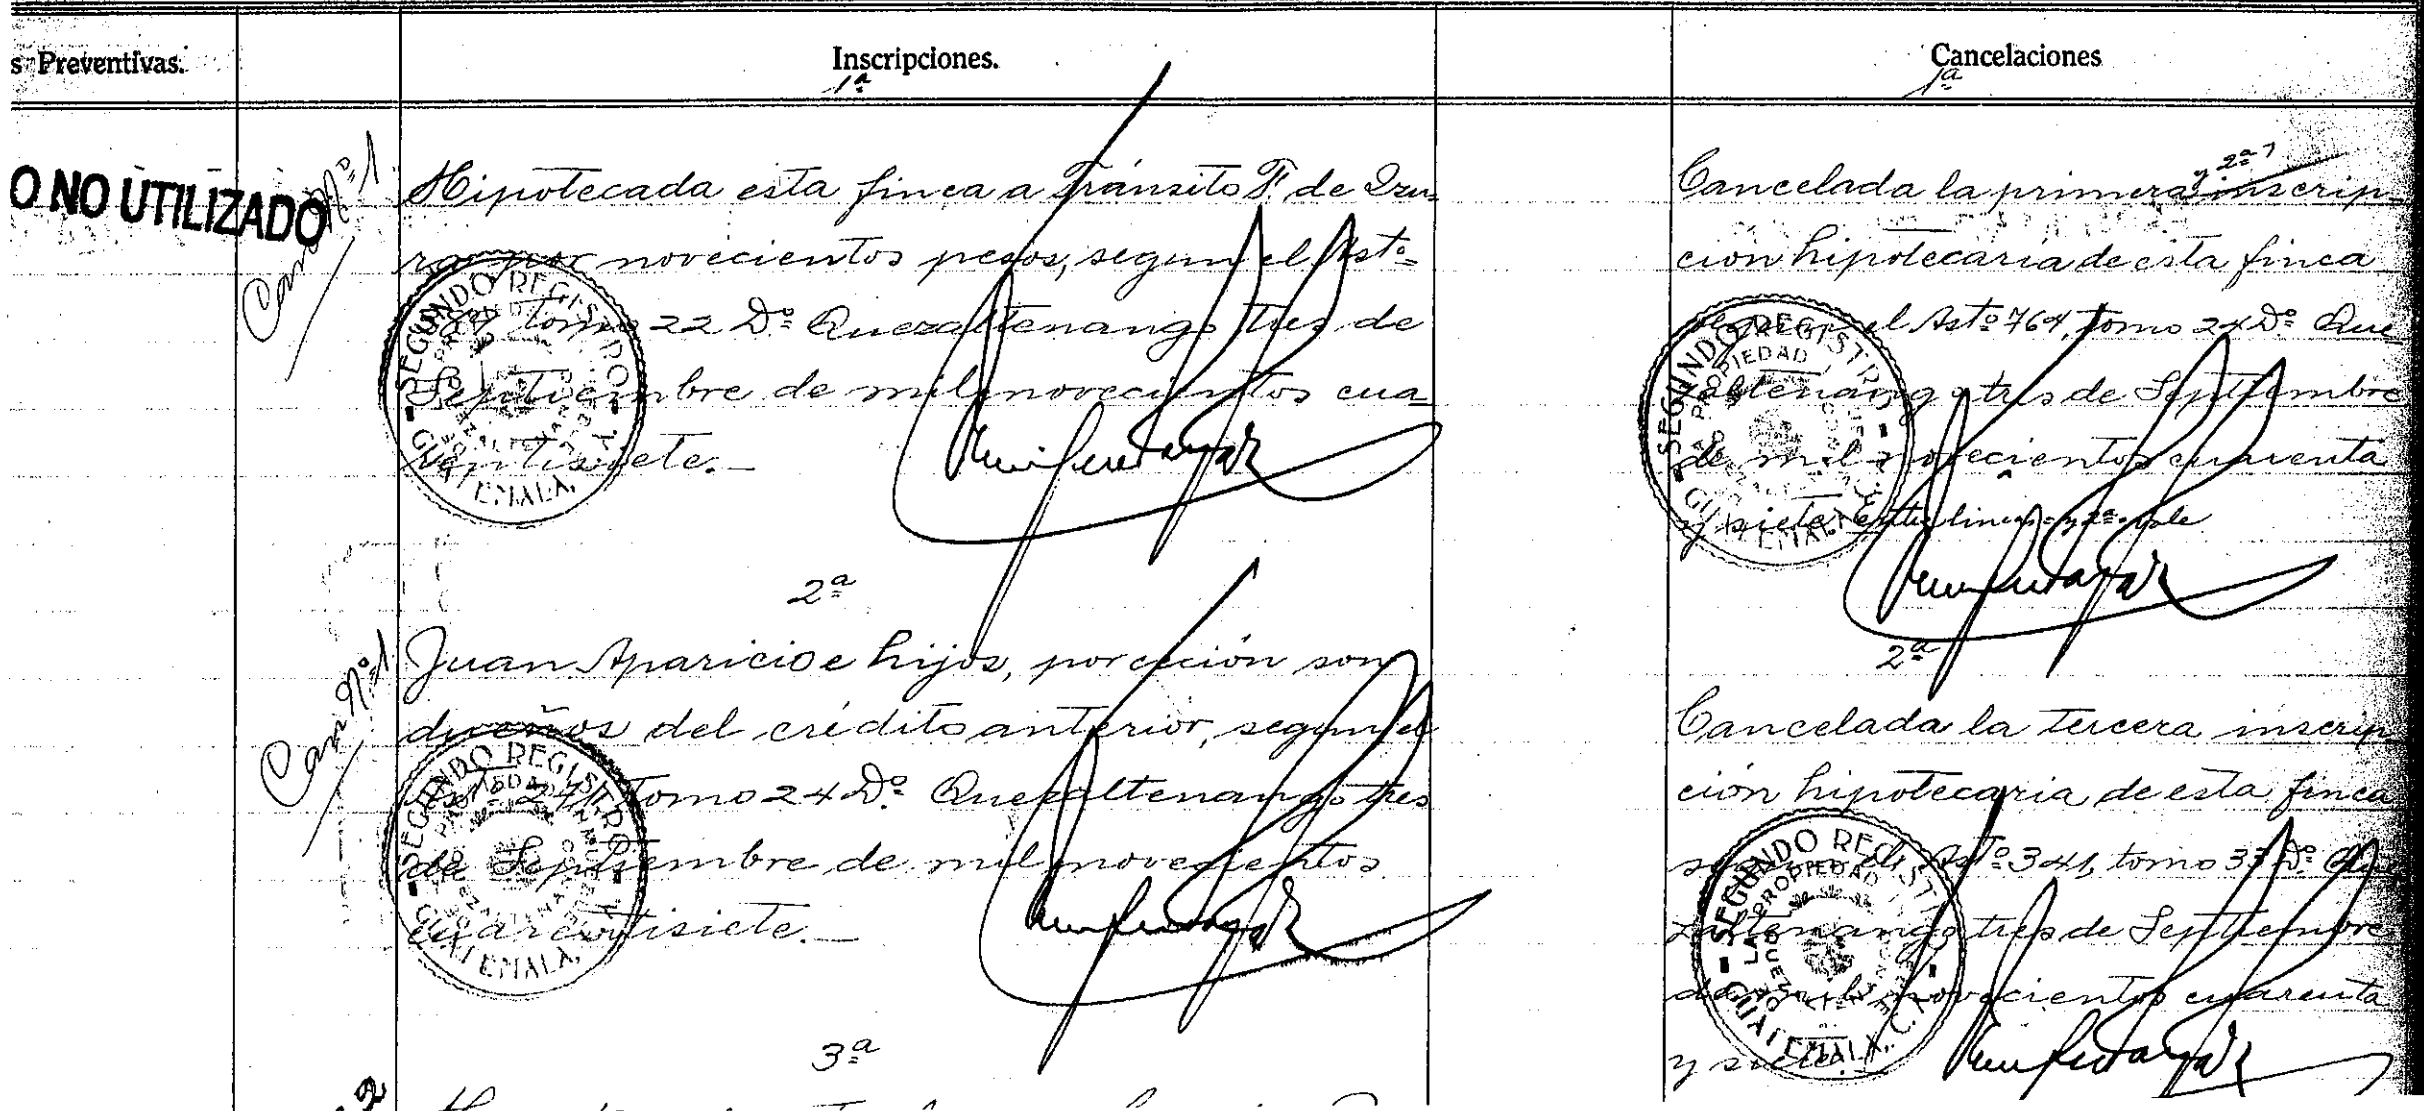 s Preventivas.
Inscripciones.
Cancelaciones
1ª
1ª
O NO UTILIZADO
Can. Nº 1.
Hipotecada esta finca a Tránsito F. de
por novecientos pesos, segun el Astº
tomo 22 Dº Quezaltenango tres de
Septiembre de mil novecientos cua-
rentisiete.—
SEGUNDO REGISTRO
GUATEMALA,
2ª
Can. Nº 1.
Juan Aparicio e hijos, por cesión son
dueños del crédito anterior, segun el
tomo 24 Dº Quezaltenango tres
de Septiembre de mil novecientos
cuarentisiete.—
SEGUNDO REGISTRO
GUATEMALA,
3ª
2
y 2ª
Cancelada la primera inscrip-
ción hipotecaria de esta finca
el Astº 764, tomo 24 Dº Que
zaltenango tres de Septiembre
de mil novecientos cuarenta
y siete. Entre lineas- y 2ª- vale
SEGUNDO REGISTR
PROPIEDAD
2ª
Cancelada la tercera inscrip-
ción hipotecaria de esta finca
segun el Astº 341, tomo 33 Dº Que
zaltenango tres de Septiembre
de mil novecientos cuarenta
y siete.
SEGUNDO REGIST
LA PROPIEDAD
GUATEMALA, C.